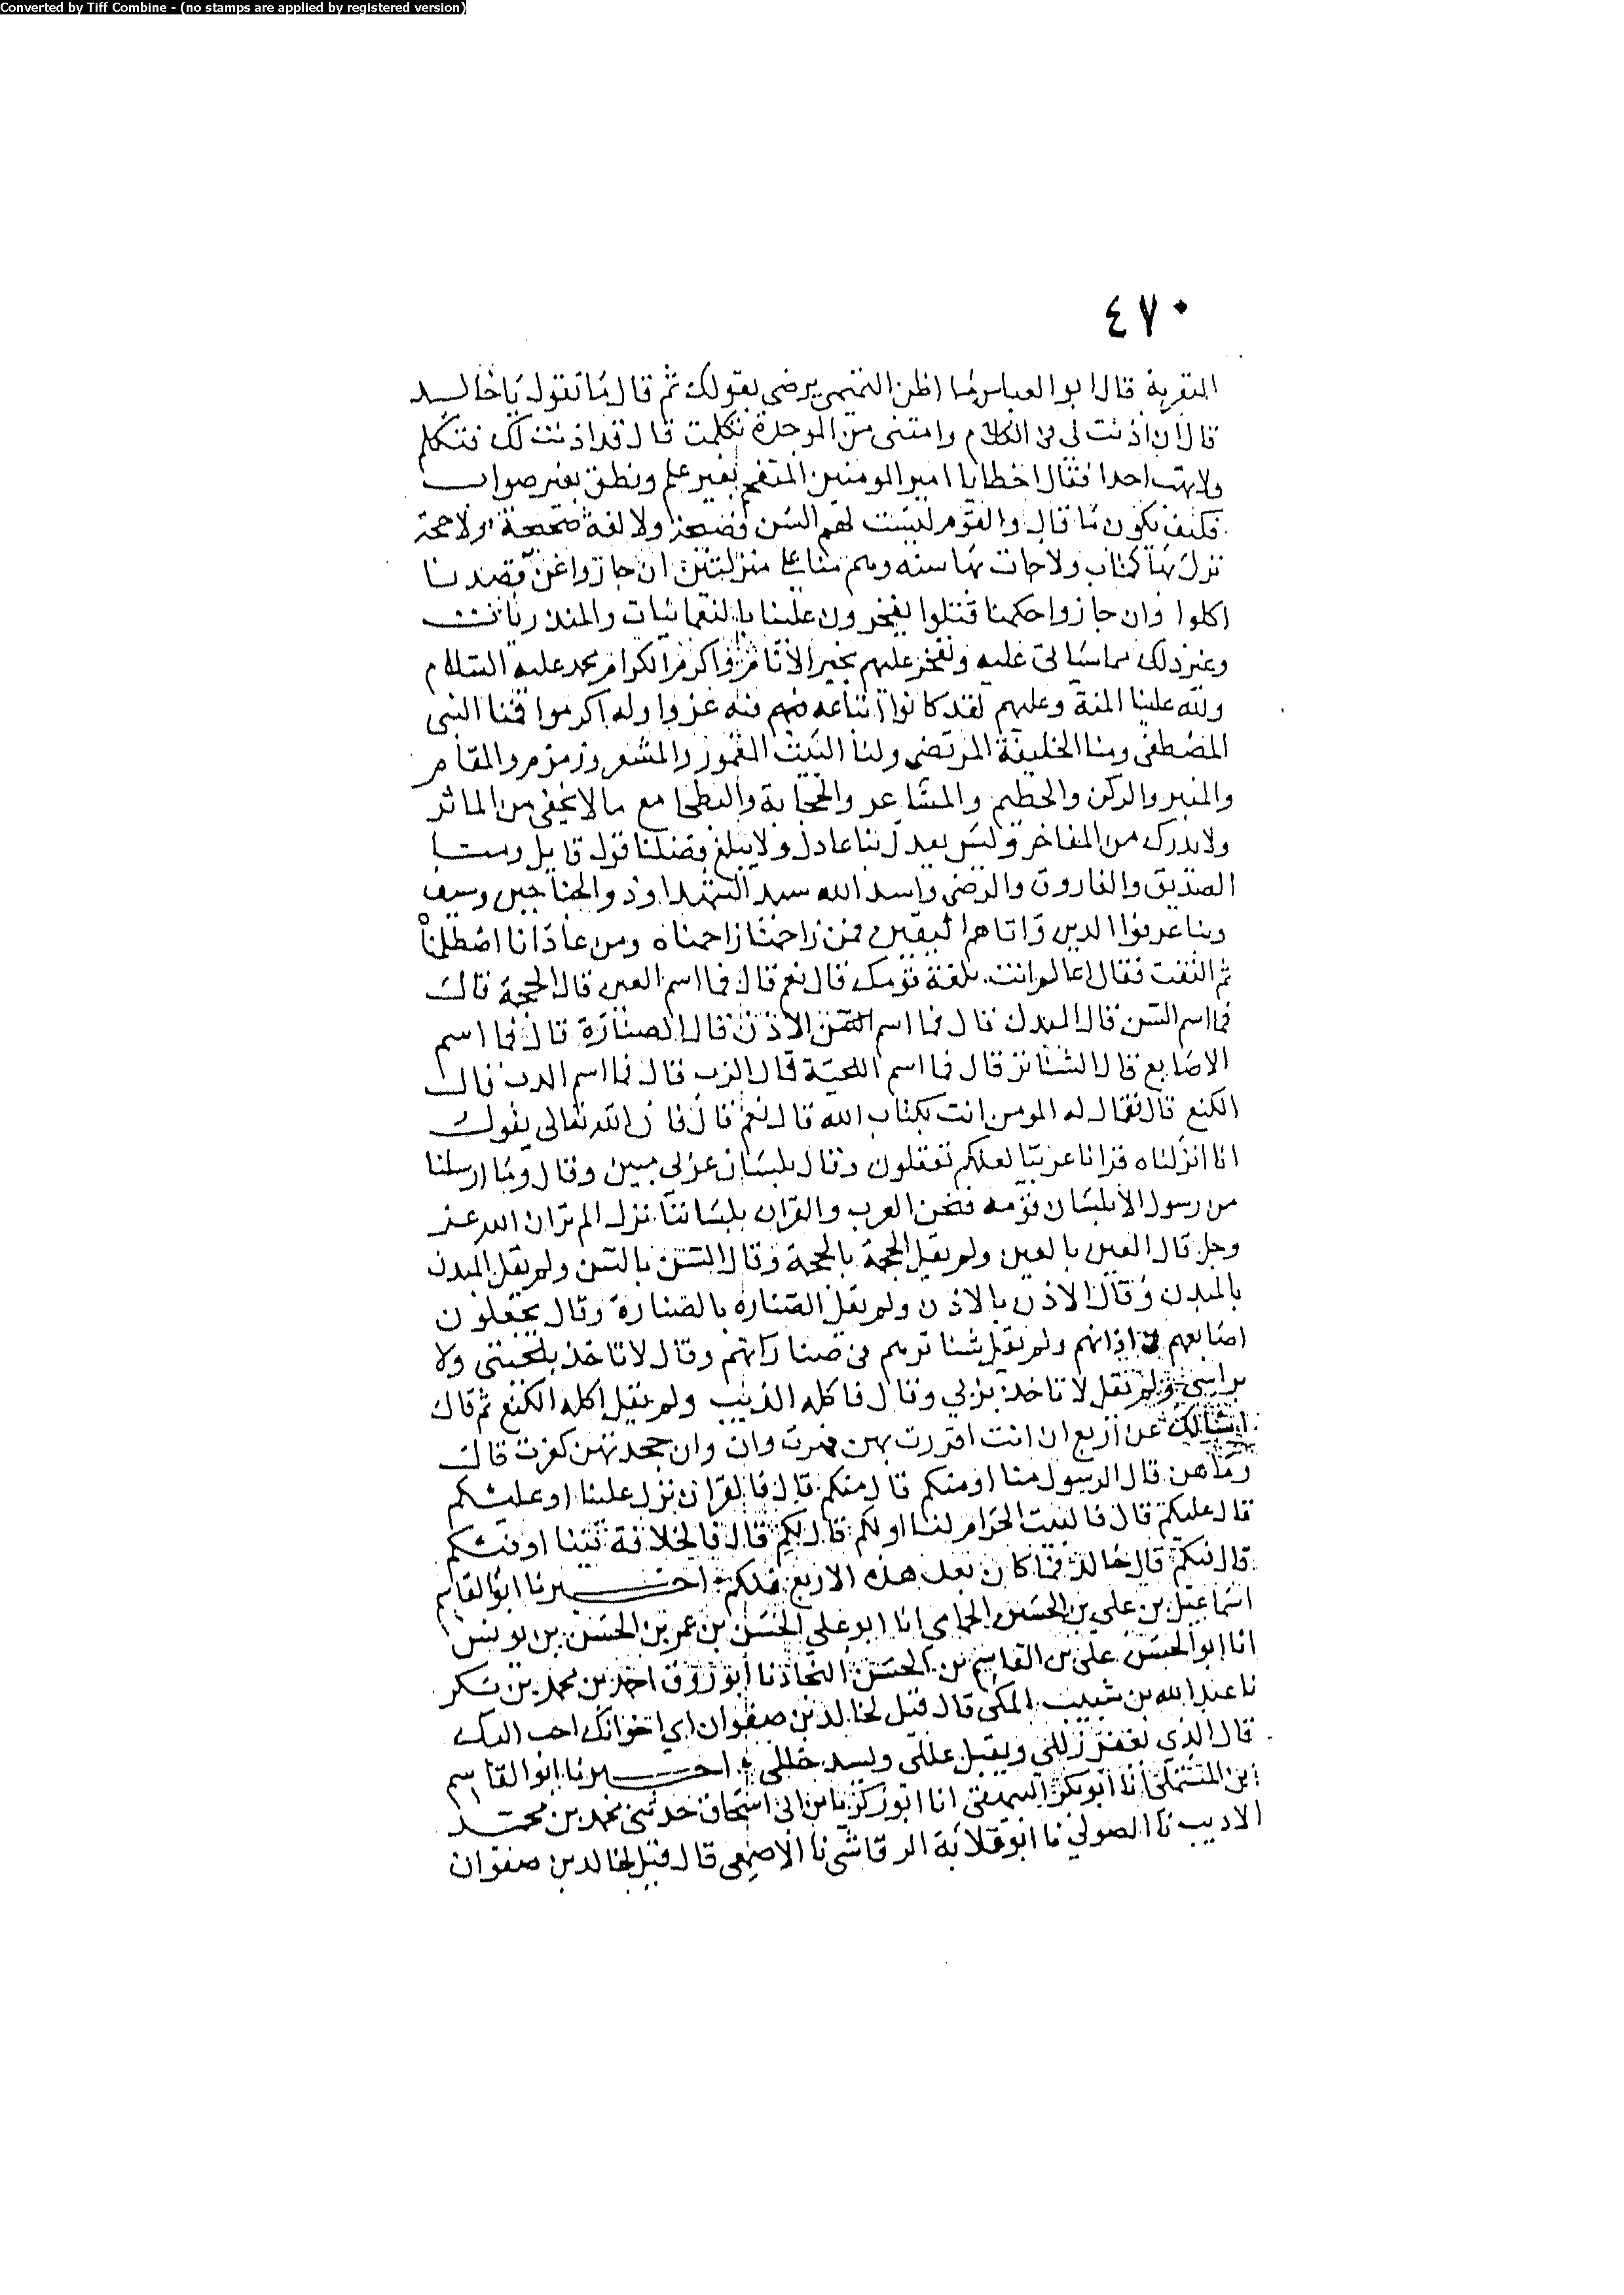 Converted by Tiff Combine - (no stamps are applied by registered version)
٤٧٠
قال ابو العباس ما اظن التميمى يرضى بقولك ثم قال ما تقول يا خالد
قال ان اذنت لى فى الكلام وامنتنى من الموجدة تكلمت قال قد اذنت لك فتكلم
ولا تهب احدا فقال اخطا يا امير المومنين المتقحم بغير علم ونطق بغير صواب
فكيف يكون ما قال والقوم ليست لهم السن فصيحة ولا لغة صحيحة ولا حجة
نزل بها كتاب ولا جات بها سنه وهم منا على منزلتين ان جازوا عن قصدنا
اكلوا وان جازوا حكمنا قتلوا يفخرون علينا بالنعمانيات والمنذريات
وغير ذلك مما سياتى عليه ونفخر عليهم بخير الانام واكرم الكرام محمد عليه السلام
ولله علينا المنة وعليهم لقد كانوا اتباعه فبه عزوا وله اكرموا فمنا النبى
المصطفى ومنا الخليفة المرتضى ولنا البيت المعمور والمشعر وزمزم والمقام
والمنبر والركن والحطيم والمشاعر والحجابة والبطحا مع ما لا يخفى من الماثر
ولا يدرك من المفاخر وليس يعدل بنا عادل ولا يبلغ فضلنا قول قايل ومنا
الصديق والفاروق والرضى واسد الله سيد الشهدا وذو الجناحين وسيف
وبنا عرفوا الدين واتاهم اليقين فمن زاحمنا زاحمناه ومن عادانا اصطلمناه
ثم التفت فقال اعالم انت بلغة قومك قال نعم قال فما اسم العين قال الجحمة قال
فما اسم السن قال الميدن قال فما اسم الاذن قال الصنارة قال فما اسم
الاصابع قال الشناتر قال فما اسم اللحية قال الزب قال فما اسم الذيب قال
الكتع قال فقال له افمومن انت بكتاب الله قال نعم قال فان الله تعالى يقول
انا انزلناه قرانا عربيا لعلكم تعقلون وقال بلسان عربى مبين وقال وما ارسلنا
من رسول الا بلسان قومه فنحن العرب والقران بلساننا نزل الم تر ان الله عز
وجل قال العين بالعين ولم يقل الجحمة بالجحمة وقال السن بالسن ولم يقل الميدن
بالميدن وقال الاذن بالاذن ولم يقل الصنارة بالصنارة وقال يجعلون
اصابعهم فى اذانهم ولم يقل شناترهم فى صناراتهم وقال لا تاخذ بلحيتى ولا
براسى ولم يقل لا تاخذ بزبى وقال فاكله الذيب ولم يقل اكله الكتع ثم قال
اسالك عن اربع ان انت اقررت بهن قهرت وان جحدتهن كفرت قال
وما هن قال الرسول منا او منكم قال منكم قال فالقران نزل علينا او عليكم
قال عليكم قال فالبيت الحرام لنا او لكم قال لكم قال فالخلافة فينا او فيكم
قال فيكم قال خالد فما كان بعد هذه الاربع فلكم اخبرنا ابو القاسم
اسماعيل بن على بن الحسين الحمامى انا ابو على الحسن بن عمر بن الحسن بن يونس
انا ابو الحسن على بن القاسم بن الحسن النجاد نا ابو روق احمد بن محمد بن بكر
نا عبد الله بن شبيب المكى قال قيل لخالد بن صفوان اى اخوانك احب اليك
قال الذى يغفر زللى ويقبل عللى ويسد خللى اخبرنا ابو القاسم
ابن المستملى انا ابو بكر البيهقى انا ابو زكريا بن ابى اسحاق حدثنى محمد بن محمد
الاديب نا الصولى نا ابو قلابة الرقاشى نا الاصمعى قال قيل لخالد بن صفوان